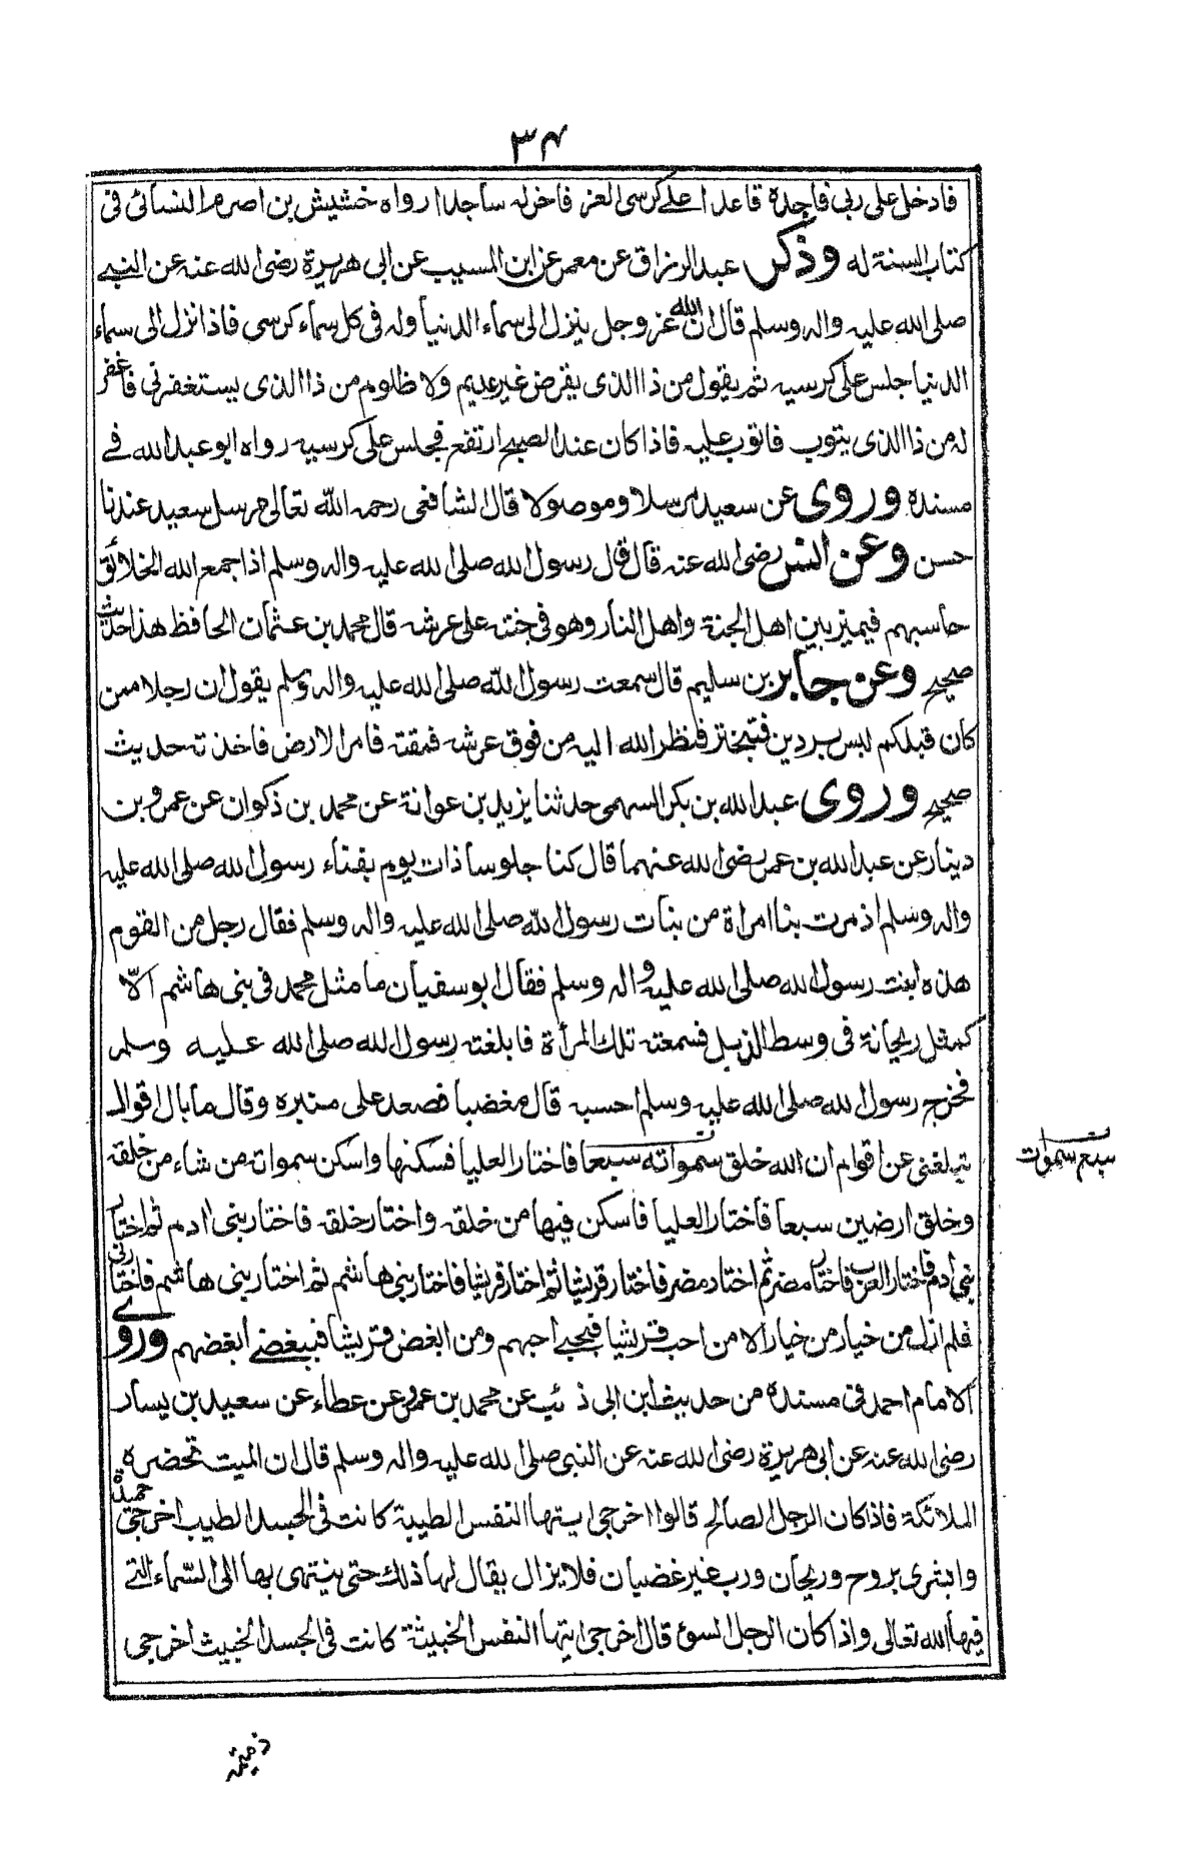 ٣٤
فادخل على ربى فاجده قاعدا على كرسى العز فاخر له ساجدا رواه خشيش بن اصرم النسائى فى
كتاب السنة له وذكر عبد الرزاق عن معمر عن ابن المسيب عن ابى هريرة رضى الله عنه عن النبى
صلى الله عليه واله وسلم قال ان الله عز وجل ينزل الى سماء الدنيا وله فى كل سماء كرسى فاذا نزل الى سماء
الدنيا جلس على كرسيه ثم يقول من ذا الذى يقرض غير عديم ولا ظلوم من ذا الذى يستغفرنى فاغفر
له من ذا الذى يتوب فاتوب عليه فاذا كان عند الصبح ارتفع فجلس على كرسيه رواه ابو عبد الله فے
مسنده وروى عن سعيد مرسلا وموصولا قال الشافعى رحمه الله تعالى مرسل سعيد عندنا
حسن وعن انس رضى الله عنه قال قال رسول الله صلى الله عليه واله وسلم اذا جمع الله الخلائق
حاسبهم فيميز بين اهل الجنة واهل النار وهو فى جنته على عرشه قال محمد بن عثمان الحافظ هذا حديث
صحيح وعن جابر بن سليم قال سمعت رسول الله صلى الله عليه واله وسلم يقول ان رجلا ممن
كان قبلكم لبس بردين فتبختر فنظر الله اليه من فوق عرشه فمقته فامر الارض فاخذته حديث
صحيح وروى عبد الله بن بكر السهمى حدثنا يزيد بن عوانة عن محمد بن ذكوان عن عمرو بن
دينار عن عبد الله بن عمر رضى الله عنهما قال كنا جلوسا ذات يوم بفناء رسول الله صلى الله عليه
واله وسلم اذ مرت بنا امراة من بنات رسول الله صلى الله عليه واله وسلم فقال رجل من القوم
هذه ابنت رسول الله صلى الله عليه واله وسلم فقال ابو سفيان ما مثل محمد فى بنى هاشم الا
كمثل ريحانة فى وسط الزبل فسمعته تلك المرأة فابلغته رسول الله صلى الله عليه وسلم
فخرج رسول الله صلى الله عليه وسلم احسبه قال مغضبا فصعد على منبره وقال ما بال اقوال
تبلغنى عن اقوام ان الله خلق سمواته سبعا فاختار العليا فسكنها واسكن سمواته من شاء من خلقه
سبع سموات
وخلق ارضين سبعا فاختار العليا فاسكن فيها من خلقه واختار خلقه فاختار بنى ادم ثم اختار
بنى ادم فاختار العرب فاختار مضر ثم اختار مضر فاختار قريشا ثم اختار قريشا فاختار بنى هاشم ثم اختار بنى هاشم فاختارنى
فلم ازل من خيار من خيار الا من احب قريشا فبحبى احبهم ومن ابغض قريشا فببغضى ابغضهم وروى
الامام احمد فى مسنده من حديث ابن ابى ذئب عن محمد بن عمرو عن عطاء عن سعيد بن يسار
رضى الله عنه عن ابى هريرة رضى الله عنه عن النبى صلى الله عليه واله وسلم قال ان الميت تحضره
الملائكة فاذا كان الرجل الصالح قالوا اخرجى ايتها النفس الطيبة كانت فى الجسد الطيب اخرجى حميدة
وابشرى بروح وريحان ورب غير غضبان فلا يزال يقال لها ذلك حتى ينتهى بها الى السماء التى
فيها الله تعالى واذا كان الرجل السوء قال اخرجى ايتها النفس الخبيثة كانت فى الجسد الخبيث اخرجى
ذميمة